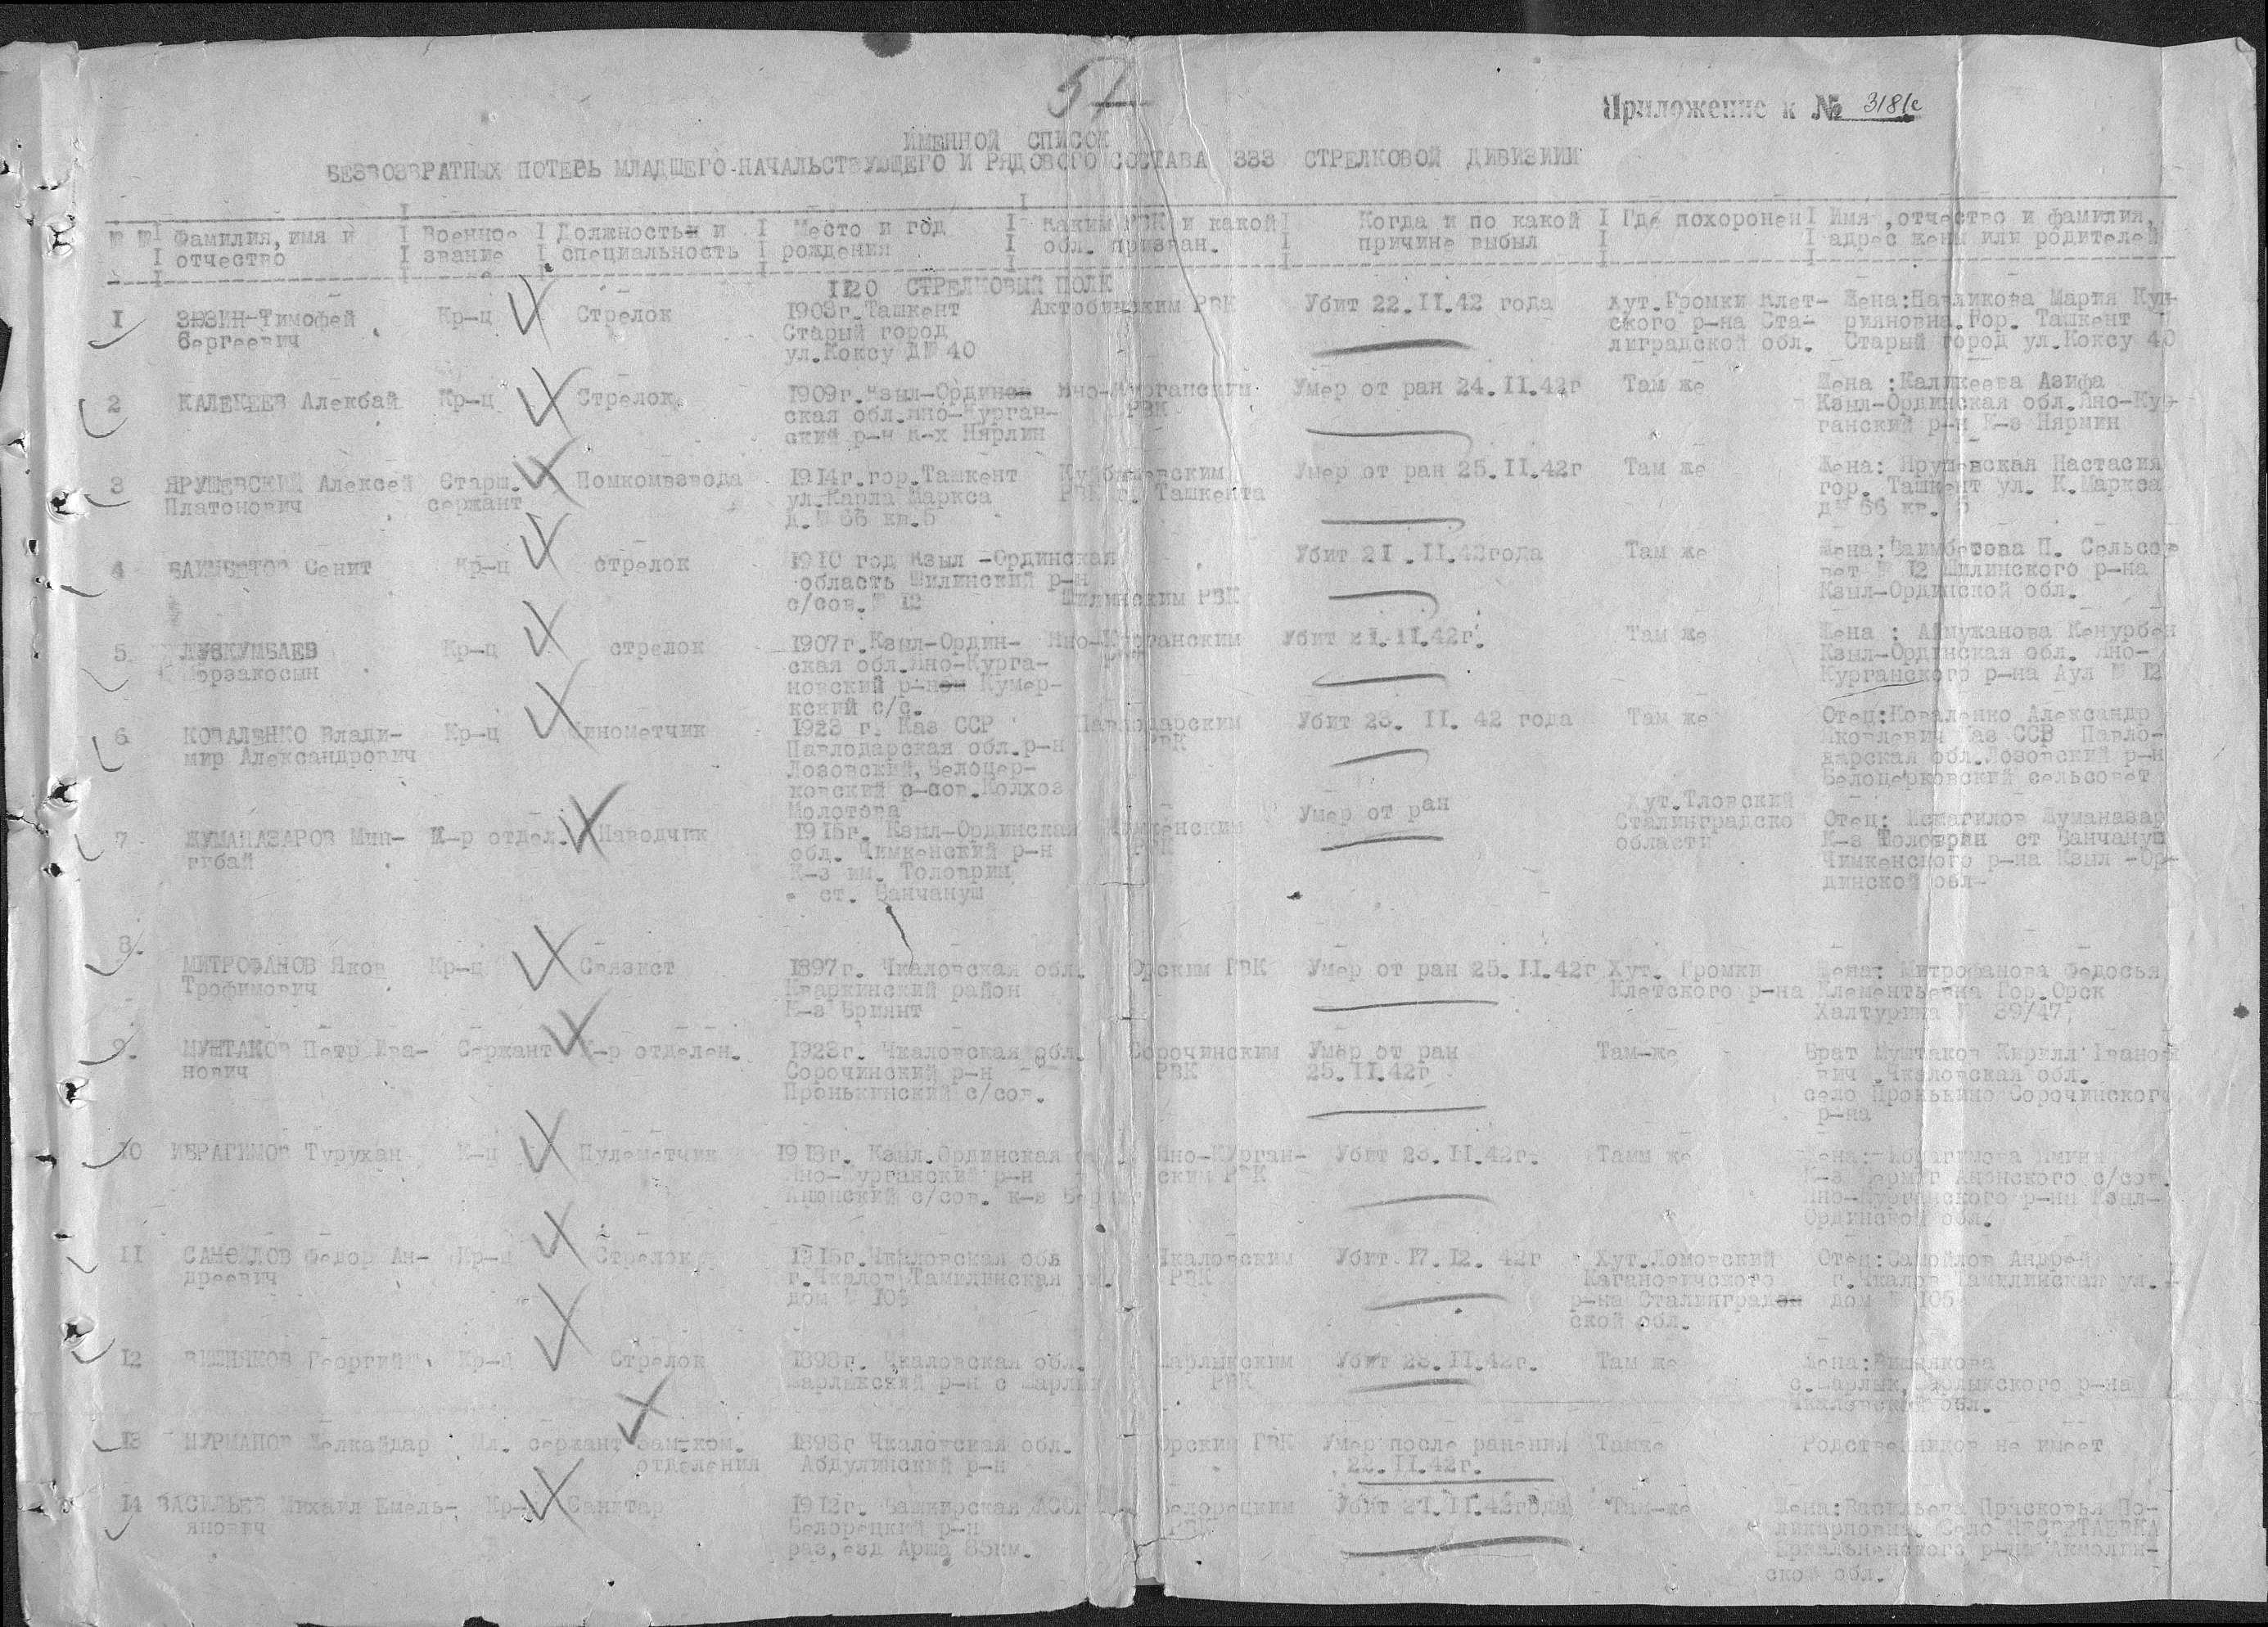 57
Приложение к № 3181с
ИМЕННОЙ СПИСОК
БЕЗВОЗВРАТНЫХ ПОТЕРЬ МЛАДШЕГО-НАЧАЛЬСТВУЮЩЕГО И РЯДОВОГО СОСТАВА 333 СТРЕЛКОВОЙ ДИВИЗИИ
№ № Фамилия, имя и отчество
Военное звание
Должность и специальность
Место и год рождения
Каким РВК и какой обл. призван.
Когда и по какой причине выбыл
Где похоронен
Имя, отчество и фамилия, адрес жены или родителей
1120 СТРЕЛКОВЫЙ ПОЛК
1 Тимофей Кр-ц Стрелок 1903г. Ташкент Актюбинским РВК Убит 22.11.42 года Хут. Громки Клет- Жена: Павликова Мария Куп-
Сергеевич Старый город ского р-на Ста- рияновна. Гор. Ташкент
ул. Коксу Д№ 40 линградской обл. Старый город ул. Коксу 40
2 КАЛЕКЕЕВ Алекбай Кр-ц Стрелок 1909г. Кзыл-Ордин Яно-Курганским Умер от ран 24.11.42г Там же Жена: Каликеева Азифа
ская обл. Яно-Курган- РВК Кзыл-Ординская обл. Яно-Кур-
ский р-н к-х Нярлин ганский р-н К-з Нярмин
3 ЯРУШЕВСКИЙ Алексей Старш. Помкомвзвода 1914г. гор. Ташкент Куйбышевским Умер от ран 25.11.42г Там же Жена: Настасия
Платонович сержант ул. Карла Маркса РВК г. Ташкента гор. Ташкент ул. К. Маркса
д. № 66 кв. 5 д№ 66 кв. 5
4 БАИМБЕТОВ Сенит Кр-ц стрелок 1910 год Кзыл-Ординская Убит 21.11.42года Там же Жена: Баимбетова П. Сельсо
область Шилинский р-н вет № 12 Шилинского р-на
с/сов. № 12 Шилинским РВК Кзыл-Ординской обл.
5 Кр-ц стрелок 1907г. Кзыл-Ордин- Яно-Курганским Убит 21.11.42г. Там же Жена: Кенурбен
ская обл. Яно-Курга- Кзыл-Ординская обл. Яно-
новский р-н Кумер- Курганского р-на Аул № 12
кский с/с.
6 КОВАЛЕНКО Влади- Кр-ц Минометчик 1923 г. Каз ССР Павлодарским Убит 23. 11. 42 года Там же Отец: Коваленко Александр
мир Александрович Павлодарская обл. р-н РВК Яковлевич Каз ССР Павло-
Лозовский, Белоцер- дарская обл. Лозовский р-н
ковский с-сов. Колхоз Белоцерковский сельсовет
Молотова
7 ЖУМАНАЗАРОВ Мин- К-р отдел. Наводчик 1915г. Кзыл-Ординская РВК Умер от ран Хут. Тловский Отец: Жуманазар
гбай обл. Чимкенский р-н Сталинградско К-з ст Банчануш
К-з им. Толоврин области Чимкенского р-на Кзыл-Ор-
ст. Банчануш динской обл-
8. МИТРОФАНОВ Яков Кр-ц Связист 1897г. Чкаловская обл. Орским РВК Умер от ран 25.11.42г Хут. Громки Жена: Митрофанова Федосья
Трофимович Кваркинский район Клетского р-на Клементьевна Гор. Орск
К-з Бриянт Халтурина № 39/47,
9. МУШТАКОВ Петр Ива- Сержант К-р отделен. 1923г. Чкаловская обл. Сорочинским Умер от ран Там-же Брат Муштаков Кирилл Ивано
нович Сорочинский р-н РВК 25.11.42г вич. Чкаловская обл.
Пронькинский с/сов. село Пронькино Сорочинского
р-на
10 ИБРАГИМОВ Турухан К-ц Пулеметчик 1918г. Кзыл. Ординская Яно-Курган- Убит 23.11.42г. Тамм же Жена:
Яно-Курганский р-н ским РВК с/сов.
с/сов. к-з Яно-Курганского р-на Кзыл-
Ординской обл.
11 САМОЙЛОВ Федор Ан- Кр-ц Стрелок 1915г. Чкаловская обл Чкаловским Убит 17.12. 42г Хут. Ломовский Отец: Самойлов Андрей
дреевич г. Чкалов Тамилинская ул. РВК Кагановичского г. Чкалов Тамилинская ул.
дом № 105 р-на Сталинград дом № 105
ской обл.
12 ВИШНЯКОВ Георгий Кр-ц Стрелок 1898г. Чкаловская обл. Шарлыкским Убит 23.11.42г. Там же Жена: Вишнякова
Шарлыкский р-н с Шарлык РВК с. Шарлык, Шарлыкского р-на
Чкаловской обл.
13 НУРМАНОВ Мл. сержант Зам. ком. 1898г Чкаловская обл. Орским РВК Умер после ранения Тамже Родственников не имеет
отделения Абдулинский р-н 22.11.42г.
14 ВАСИЛЬЕВ Михаил Емель- Кр-ц Санитар 1912г. Башкирская АССР Белорецким Убит 21.11.42года Там-же Жена: Васильева Прасковья По-
янович Белорецкий р-н РВК ликарповна. Село
раз, езд Арша 85км. р-на Акмолин-
ской обл.